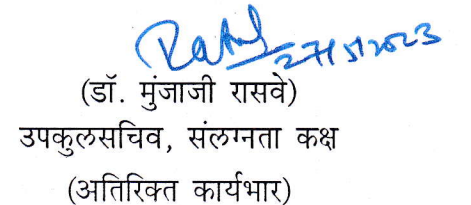 27/5/2023
(डॉ. मुंजाजी रासवे)
उपकुलसचिव, संलग्नता कक्ष
(अतिरिक्त कार्यभार)